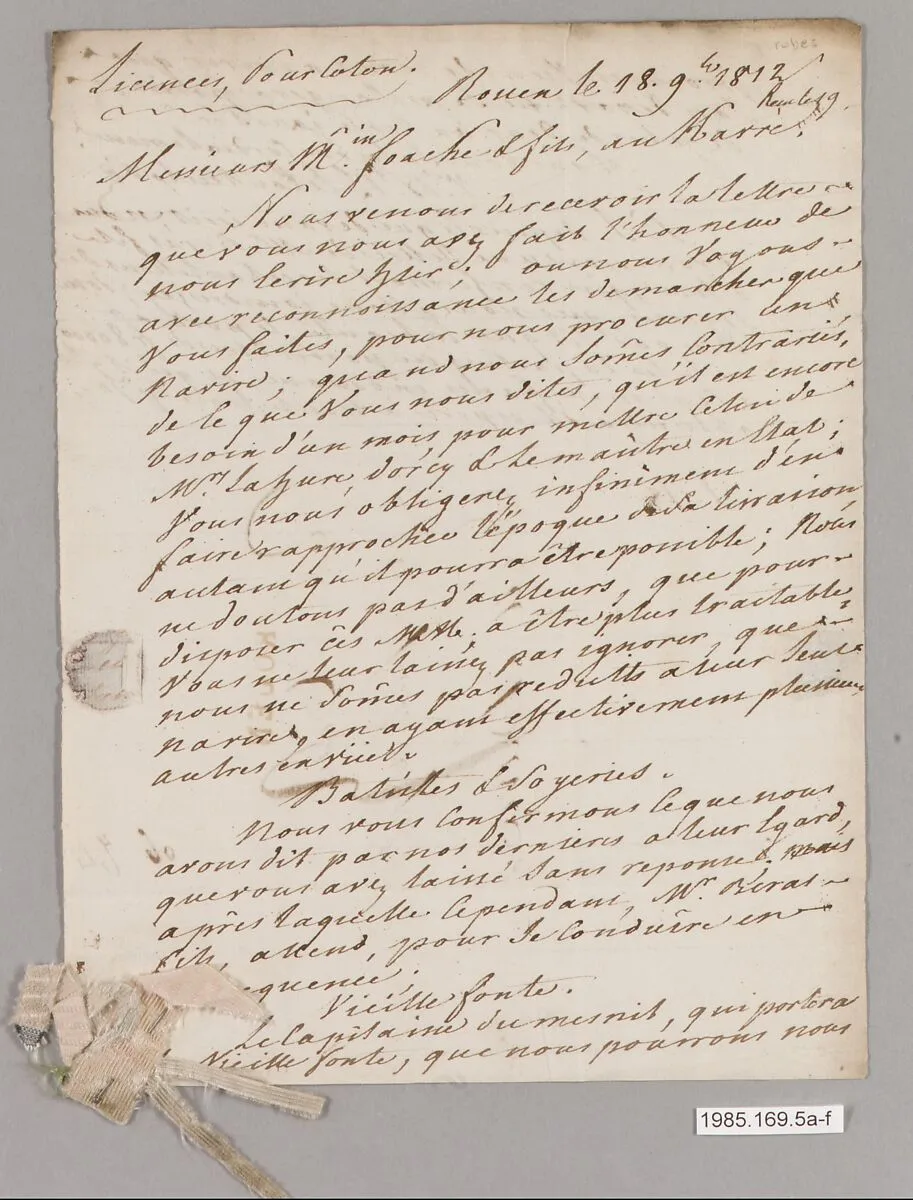 robes
Licences, Pour Coton.
Rouen le. 18. 9.bre 1812
Messieurs M.in foache & fils, au Havre.
Nous venons de recevoir la lettre
que vous nous avez fait l'honneur de
nous Ecrire hier; ou nous Voyons
avec reconnoissance les demarches que
Vous faites, pour nous procurer un
Navire; quand nous Somes Contrariés,
de Ce que Vous nous dites, qu'il est encore
besoin d'un mois pour mettre Celui de
Mrs. Lahure dorcy & Lemaitre en Etat;
Vous nous obligerez infiniment d'en
faire rapprochée l'Epoque de Sa livraison
autant qu'il pourra être possible; Nous
ne doutons pas d'ailleurs, que pour
disposer Ces MM. a être plus traitable
Vous ne leur laissez pas ignorer, que
nous ne Somes pas reduits a leur Seul
navire, en ayant effectivement plusieurs
autres en vüe.
Batistes & Soyeries.
Nous vous Confirmons Ce que nous
avons dit par nos dernieres a leur Egard,
que vous avez laissé Sans reponse. mais
après laquelle Cependant, Mr. Beras
fils, attend, pour Se Conduire en
quence.
Vieille fonte.
Le Capitaine dumesnil, qui portera
Vieille fonte, que nous pourrons nous
1985.169.5a-f